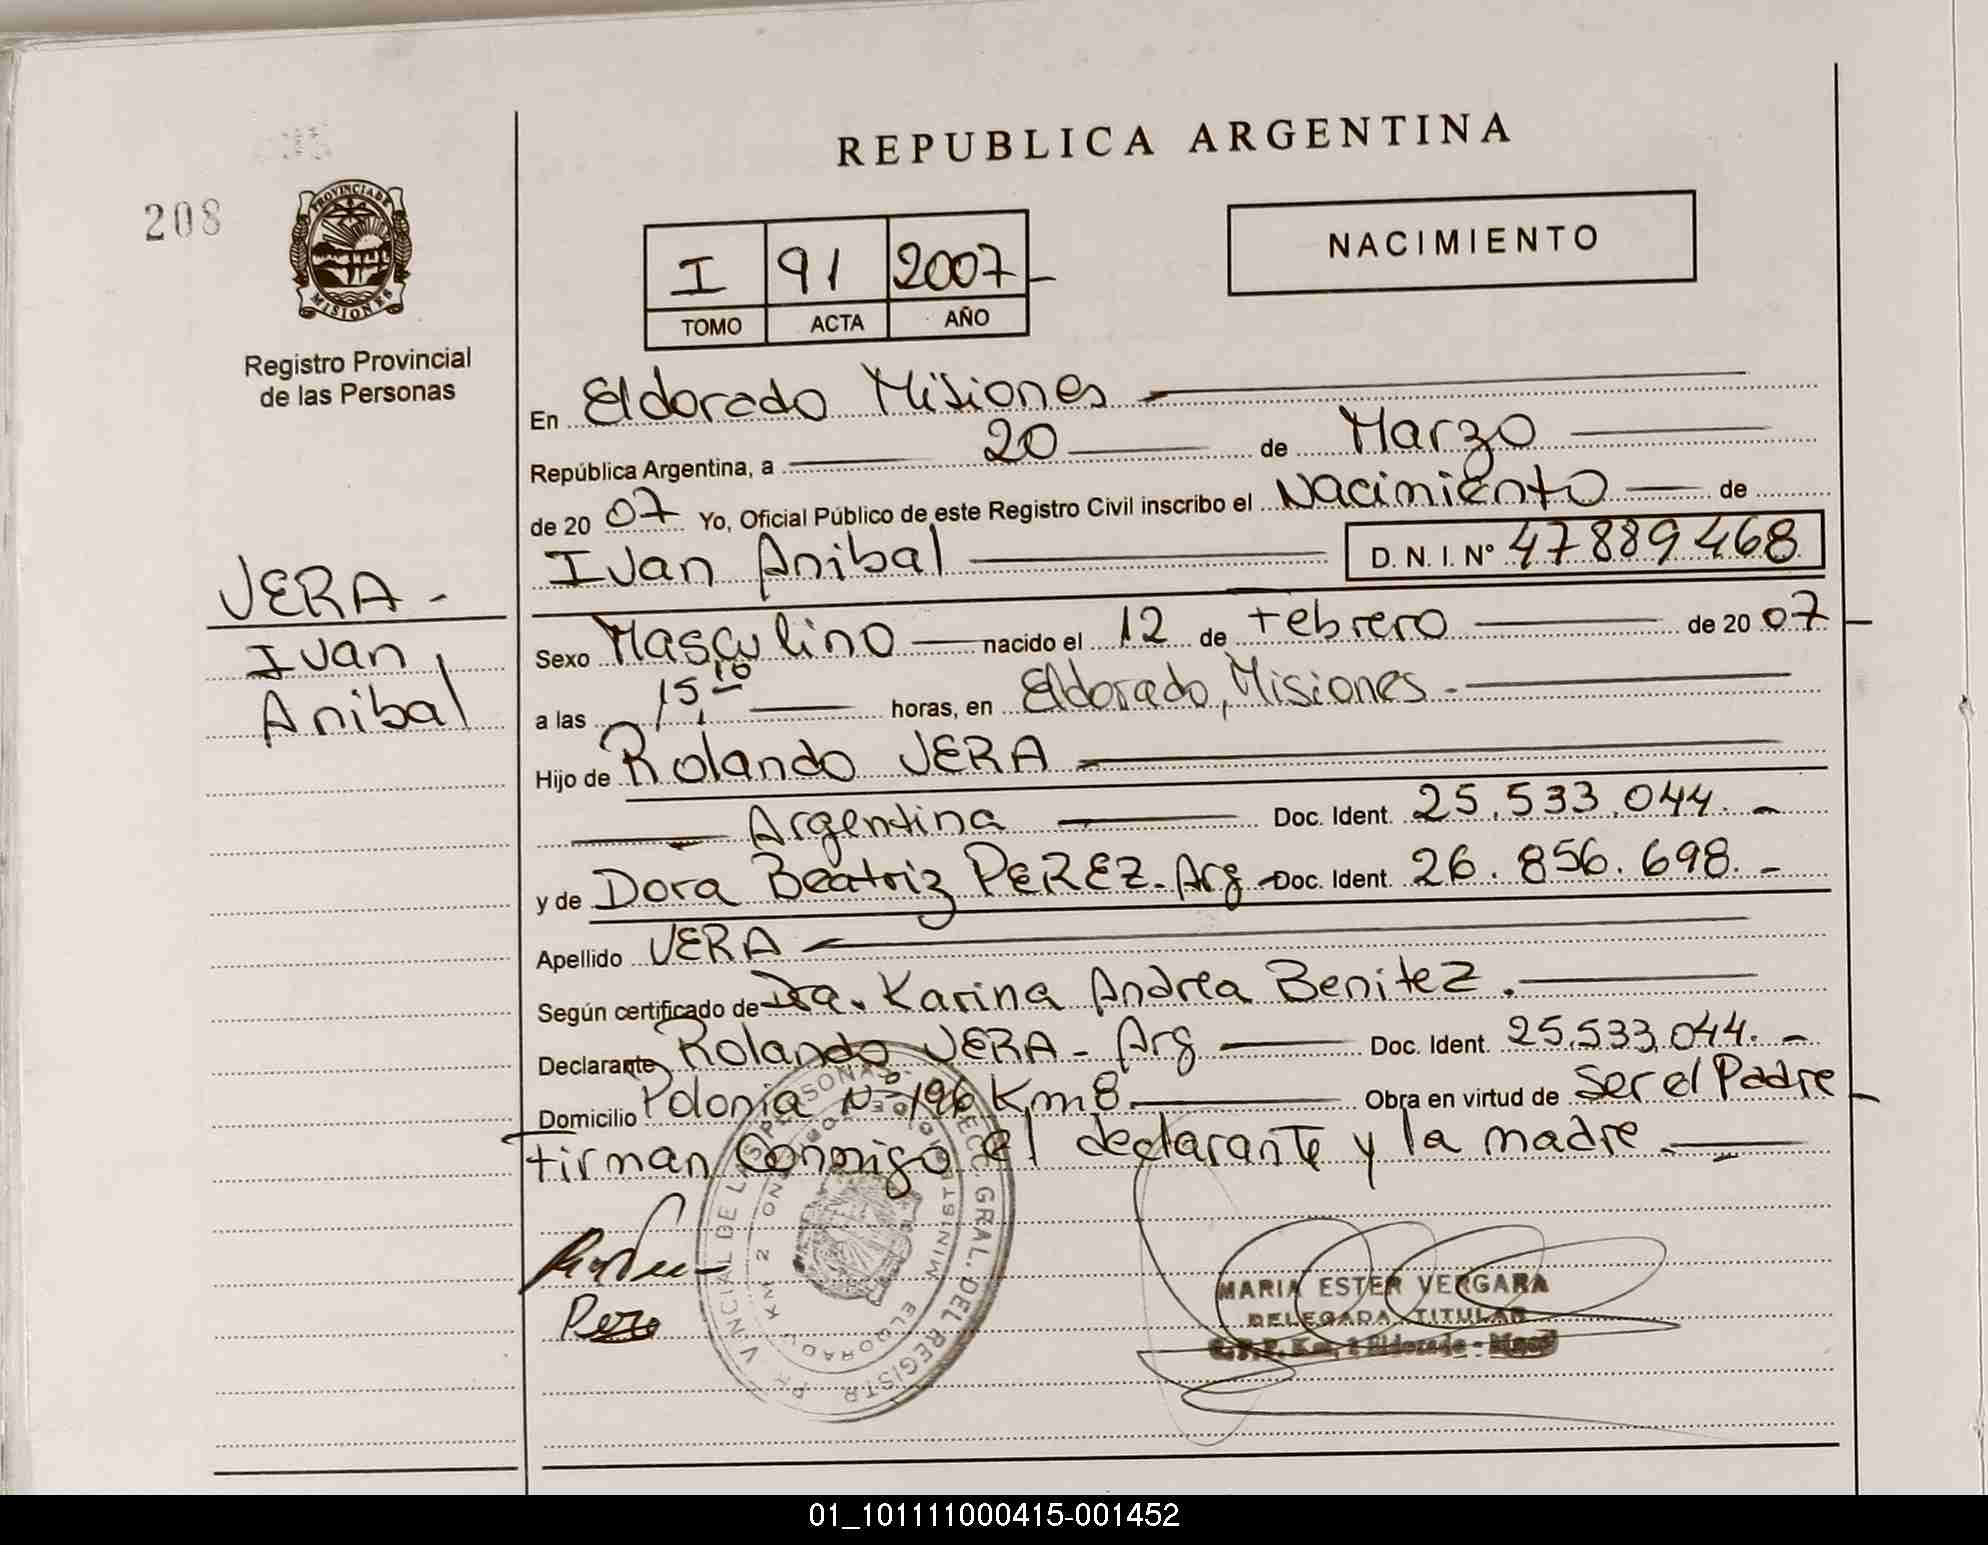 REPUBLICA ARGENTINA
208
PROVINCIA DE MISIONES
Registro Provincial
de las Personas
I 91 2007
TOMO ACTA AÑO
NACIMIENTO
VERA -
Ivan
Anibal
En Eldorado Misiones
República Argentina, a 20 de Marzo
de 2007 Yo, Oficial Público de este Registro Civil inscribo el Nacimiento de
Ivan Anibal D. N. I. Nº 47889468
Sexo Masculino nacido el 12 de Febrero de 2007
a las 15,10 horas, en Eldorado, Misiones.-
Hijo de Rolando VERA
Argentina Doc. Ident. 25.533.044.-
y de Dora Beatriz PEREZ- Arg - Doc. Ident. 26.856.698.-
Apellido VERA
Según certificado de Dra. Karina Andrea Benitez.
Declarante Rolando VERA - Arg Doc. Ident. 25.533.044.-
Domicilio Polonia Nº 196 Km 8 Obra en virtud de Ser el Padre
Firman Conmigo el declarante y la madre.-
MARIA ESTER VERGARA
DELEGADA TITULAR
01_101111000415-001452